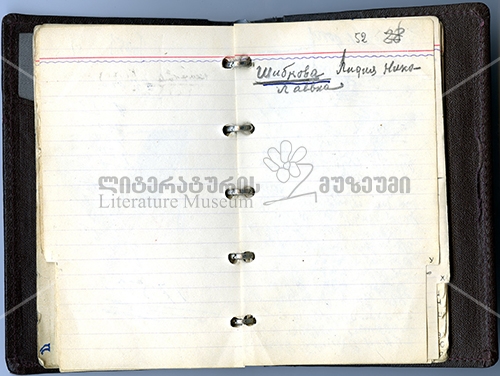 52
Шибкова Лидия Нико-
лаевна
ლიტერატურის მუზეუმი
Literature Museum